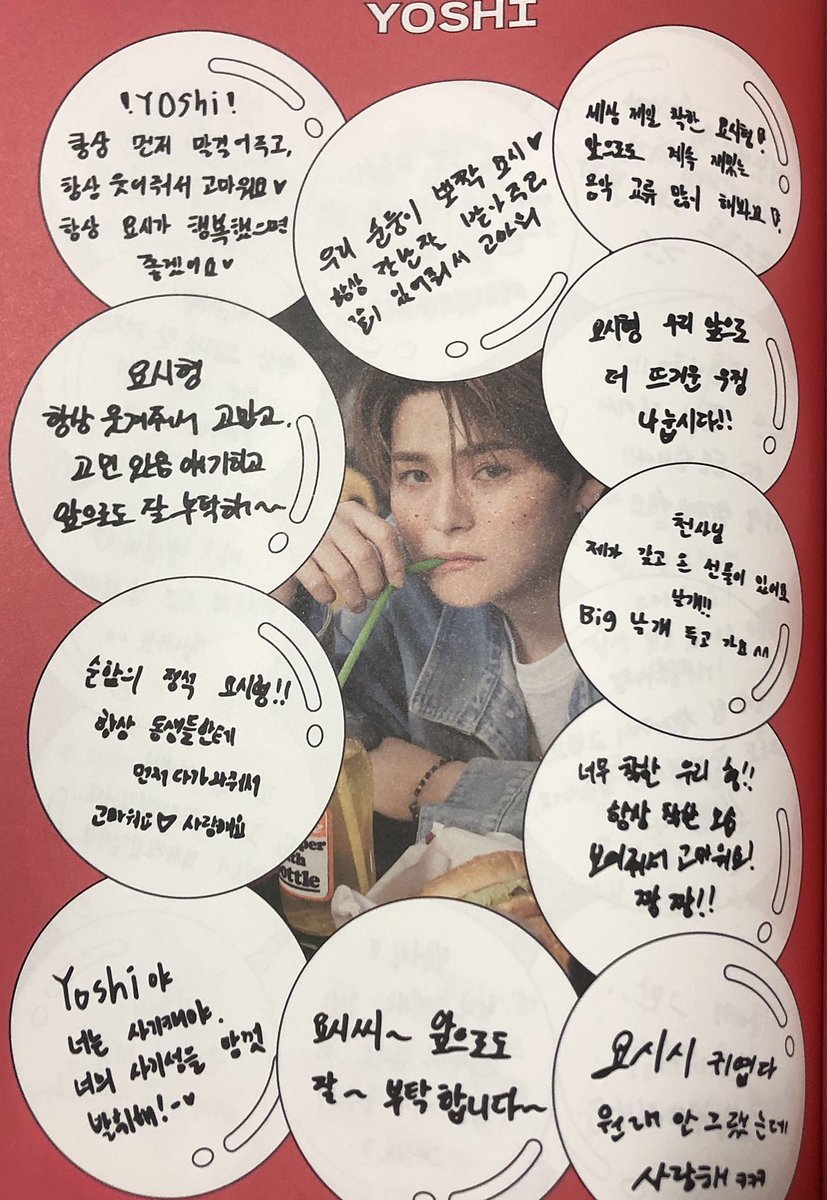 YOSHI
!YOshi!
항상 먼저 말걸어주고,
항상 웃어줘서 고마워요♥
항상 요시가 행복했으면
좋겠어요♥
우리 순둥이 뽀짝 요시♥
항상 장난잘 받아주고
같이 있어줘서 고마워
세상 제일 착한 요시형!
앞으로도 계속 재밌는
음악 교류 많이 해봐요!
요시형
항상 웃겨주서 고맙고,
고민 있음 얘기하고
앞으로도 잘 부탁해~
요시형 우리 앞으로
더 뜨거운 우정
나눕시다!!
천사님
제가 갖고 온 선물이 있어요
날개!!
Big 날개 두고 가요 ^^
순함의 정석 요시형!!
항상 동생들한테
먼저 다가와줘서
고마워요♡ 사랑해요
너무 착한 우리 형!!
항상 착한 모습
보여줘서 고마워요!
짱 짱!!
Yoshi야
너는 사기캐야.
너의 사기성을 맘껏
발휘해!-♥
요시씨~ 앞으로도
잘~ 부탁합니다~
요시시 귀엽다
원래 안 그랬는데
사랑해 ㅋㅋㅋ